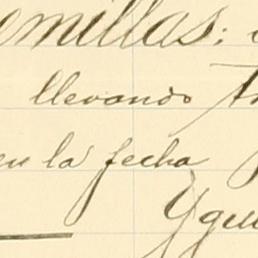 emillas:
llevando
en la fecha